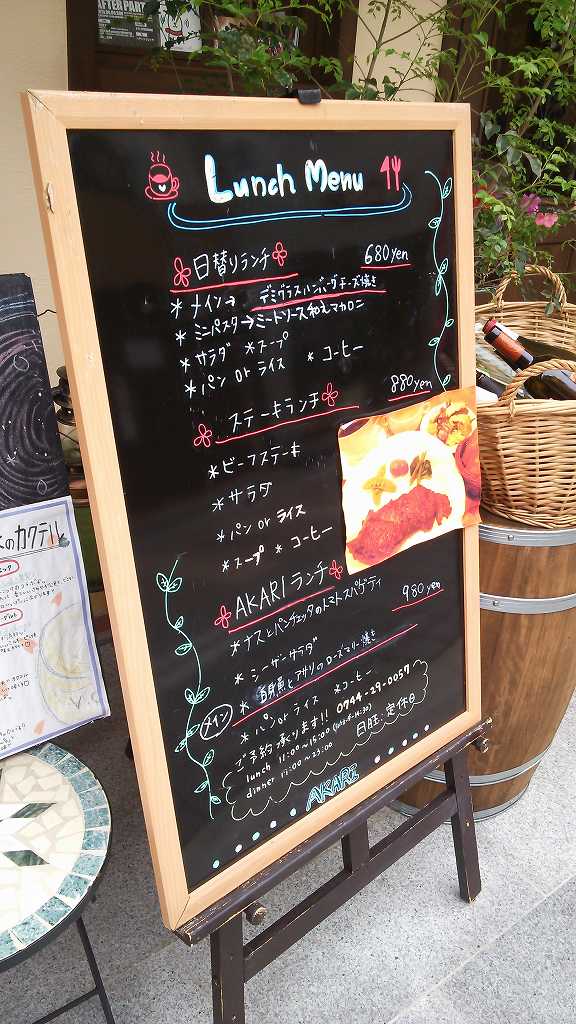 AFTER PART
Lunch Menu
日替りランチ 680yen
* メイン→ デミグラスハンバーグチーズ焼き
* ミニパスタ→ミートソース和えマカロニ
* サラダ * スープ
* パン or ライス * コーヒー
ステーキランチ 880yen
* ビーフステーキ
* サラダ
* パン or ライス
* スープ * コーヒー
AKARI ランチ 980yen
* ナスとパンチェッタのトマトスパゲティ
* シーザーサラダ
メイン * 白身魚とアサリのローズマリー焼き
* パン or ライス * コーヒー
ご予約承ります!! 0744-29-0057
lunch 11:00~15:00
dinner 17:00~23:00 日旺:定休日
AKARI
のカクテル